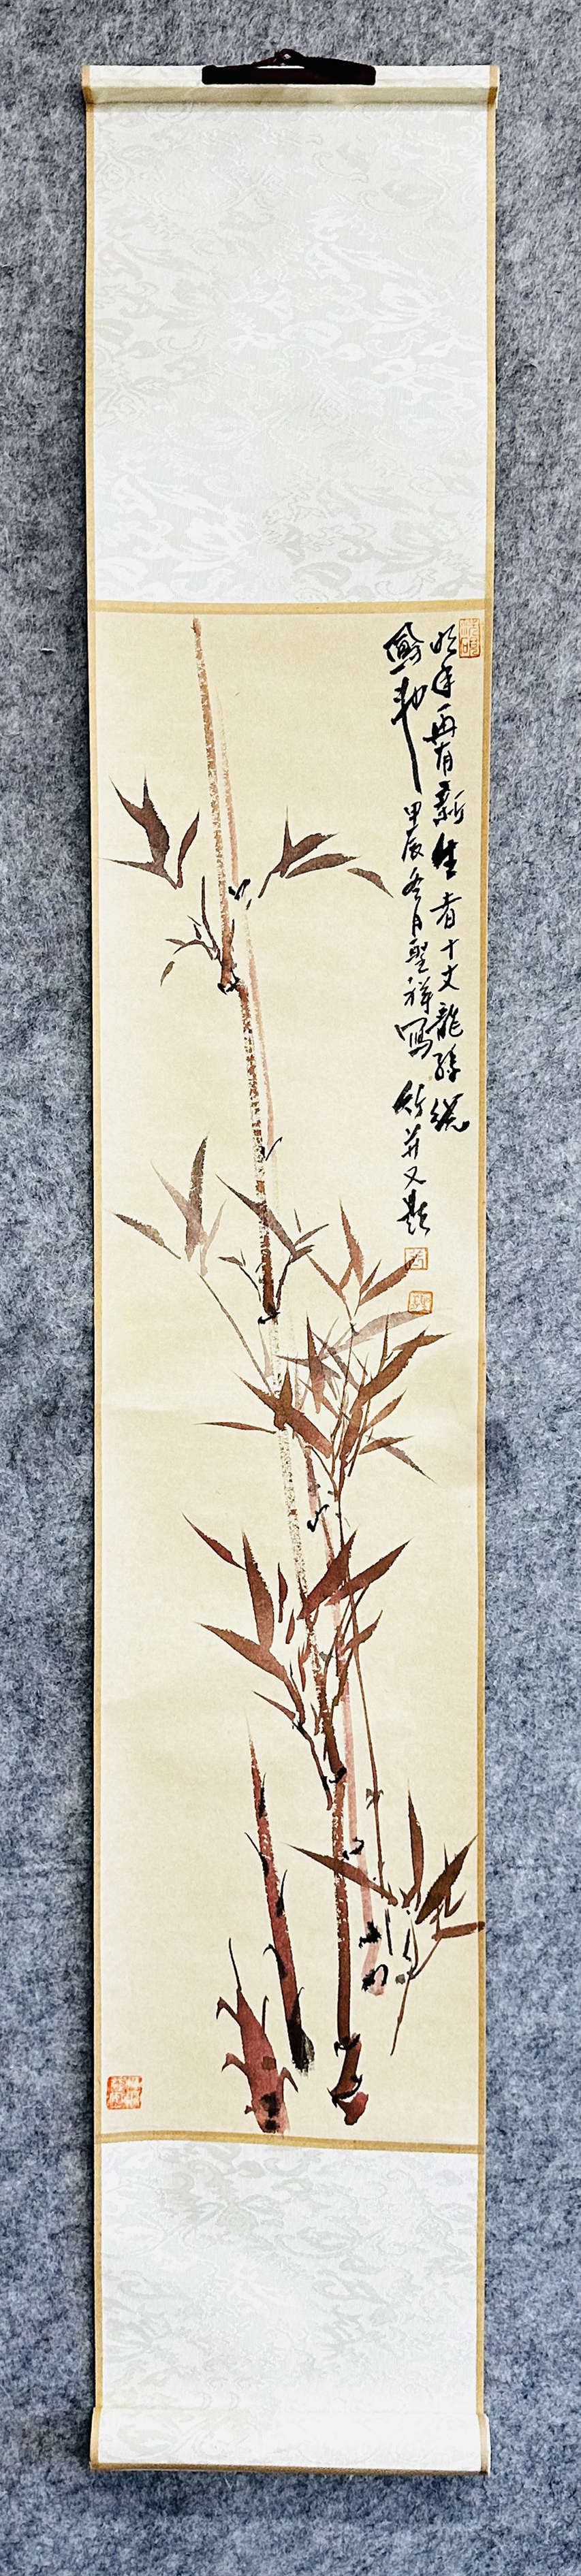 明年再有新生者十丈龍孫繞
鳳池 甲辰冬月聖祥寫竹并又題